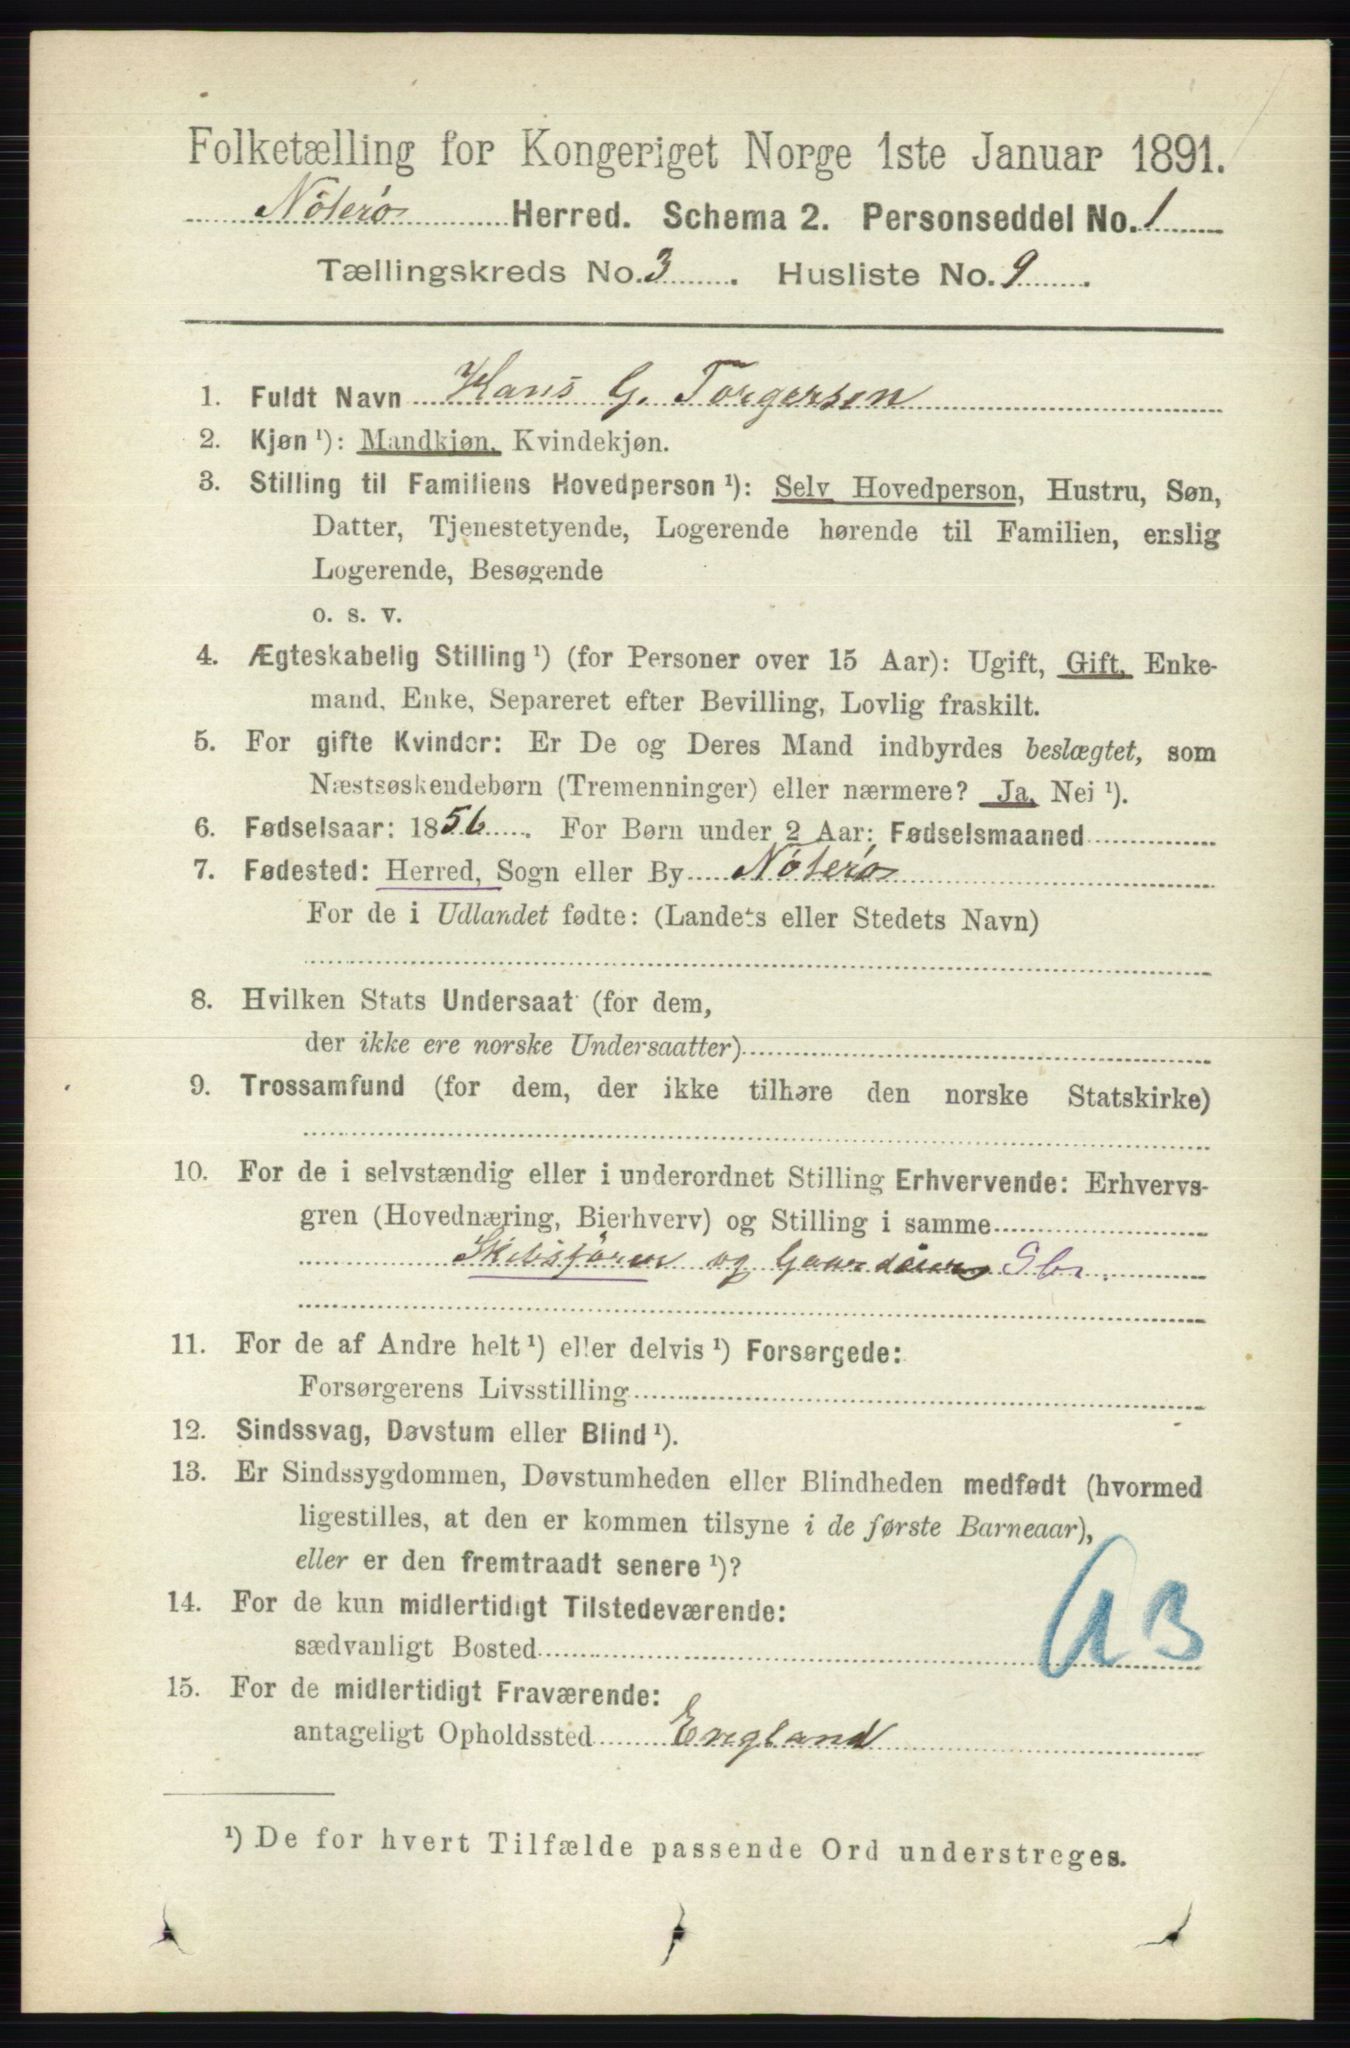 Folketælling for Kongeriget Norge 1ste Januar 1891.
Nöterö Herred. Schema 2. Personseddel No. 1
Tællingskreds No. 3. Husliste No. 9.
1. Fuldt Navn Hans G. Torgersen
2. Kjøn ¹): Mandkjøn, Kvindekjøn.
3. Stilling til Familiens Hovedperson ¹): Selv Hovedperson, Hustru, Søn,
Datter, Tjenestetyende, Logerende hørende til Familien, enslig
Logerende, Besøgende
o. s. v.
4. Ægteskabelig Stilling ¹) (for Personer over 15 Aar): Ugift, Gift, Enke-
mand, Enke, Separeret efter Bevilling, Lovlig fraskilt.
5. For gifte Kvinder: Er De og Deres Mand indbyrdes beslægtet, som
Næstsøskendebørn (Tremenninger) eller nærmere? Ja, Nei ¹).
6. Fødselsaar: 1856. For Børn under 2 Aar: Fødselsmaaned
7. Fødested: Herred, Sogn eller By Nöterö
For de i Udlandet fødte: (Landets eller Stedets Navn)
8. Hvilken Stats Undersaat (for dem,
der ikke ere norske Undersaatter)
9. Trossamfund (for dem, der ikke tilhøre den norske Statskirke)
10. For de i selvstændig eller i underordnet Stilling Erhvervende: Erhvervs-
gren (Hovednæring, Bierhverv) og Stilling i samme
Skibsförer og Gaardeier Sbr.
11. For de af Andre helt ¹) eller delvis ¹) Forsørgede:
Forsørgerens Livsstilling
12. Sindssvag, Døvstum eller Blind ¹).
13. Er Sindssygdommen, Døvstumheden eller Blindheden medfødt (hvormed
ligestilles, at den er kommen tilsyne i de første Barneaar),
eller er den fremtraadt senere ¹)?
14. For de kun midlertidigt Tilstedeværende:
sædvanligt Bosted
15. For de midlertidigt Fraværende:
antageligt Opholdssted England
¹) De for hvert Tilfælde passende Ord understreges.